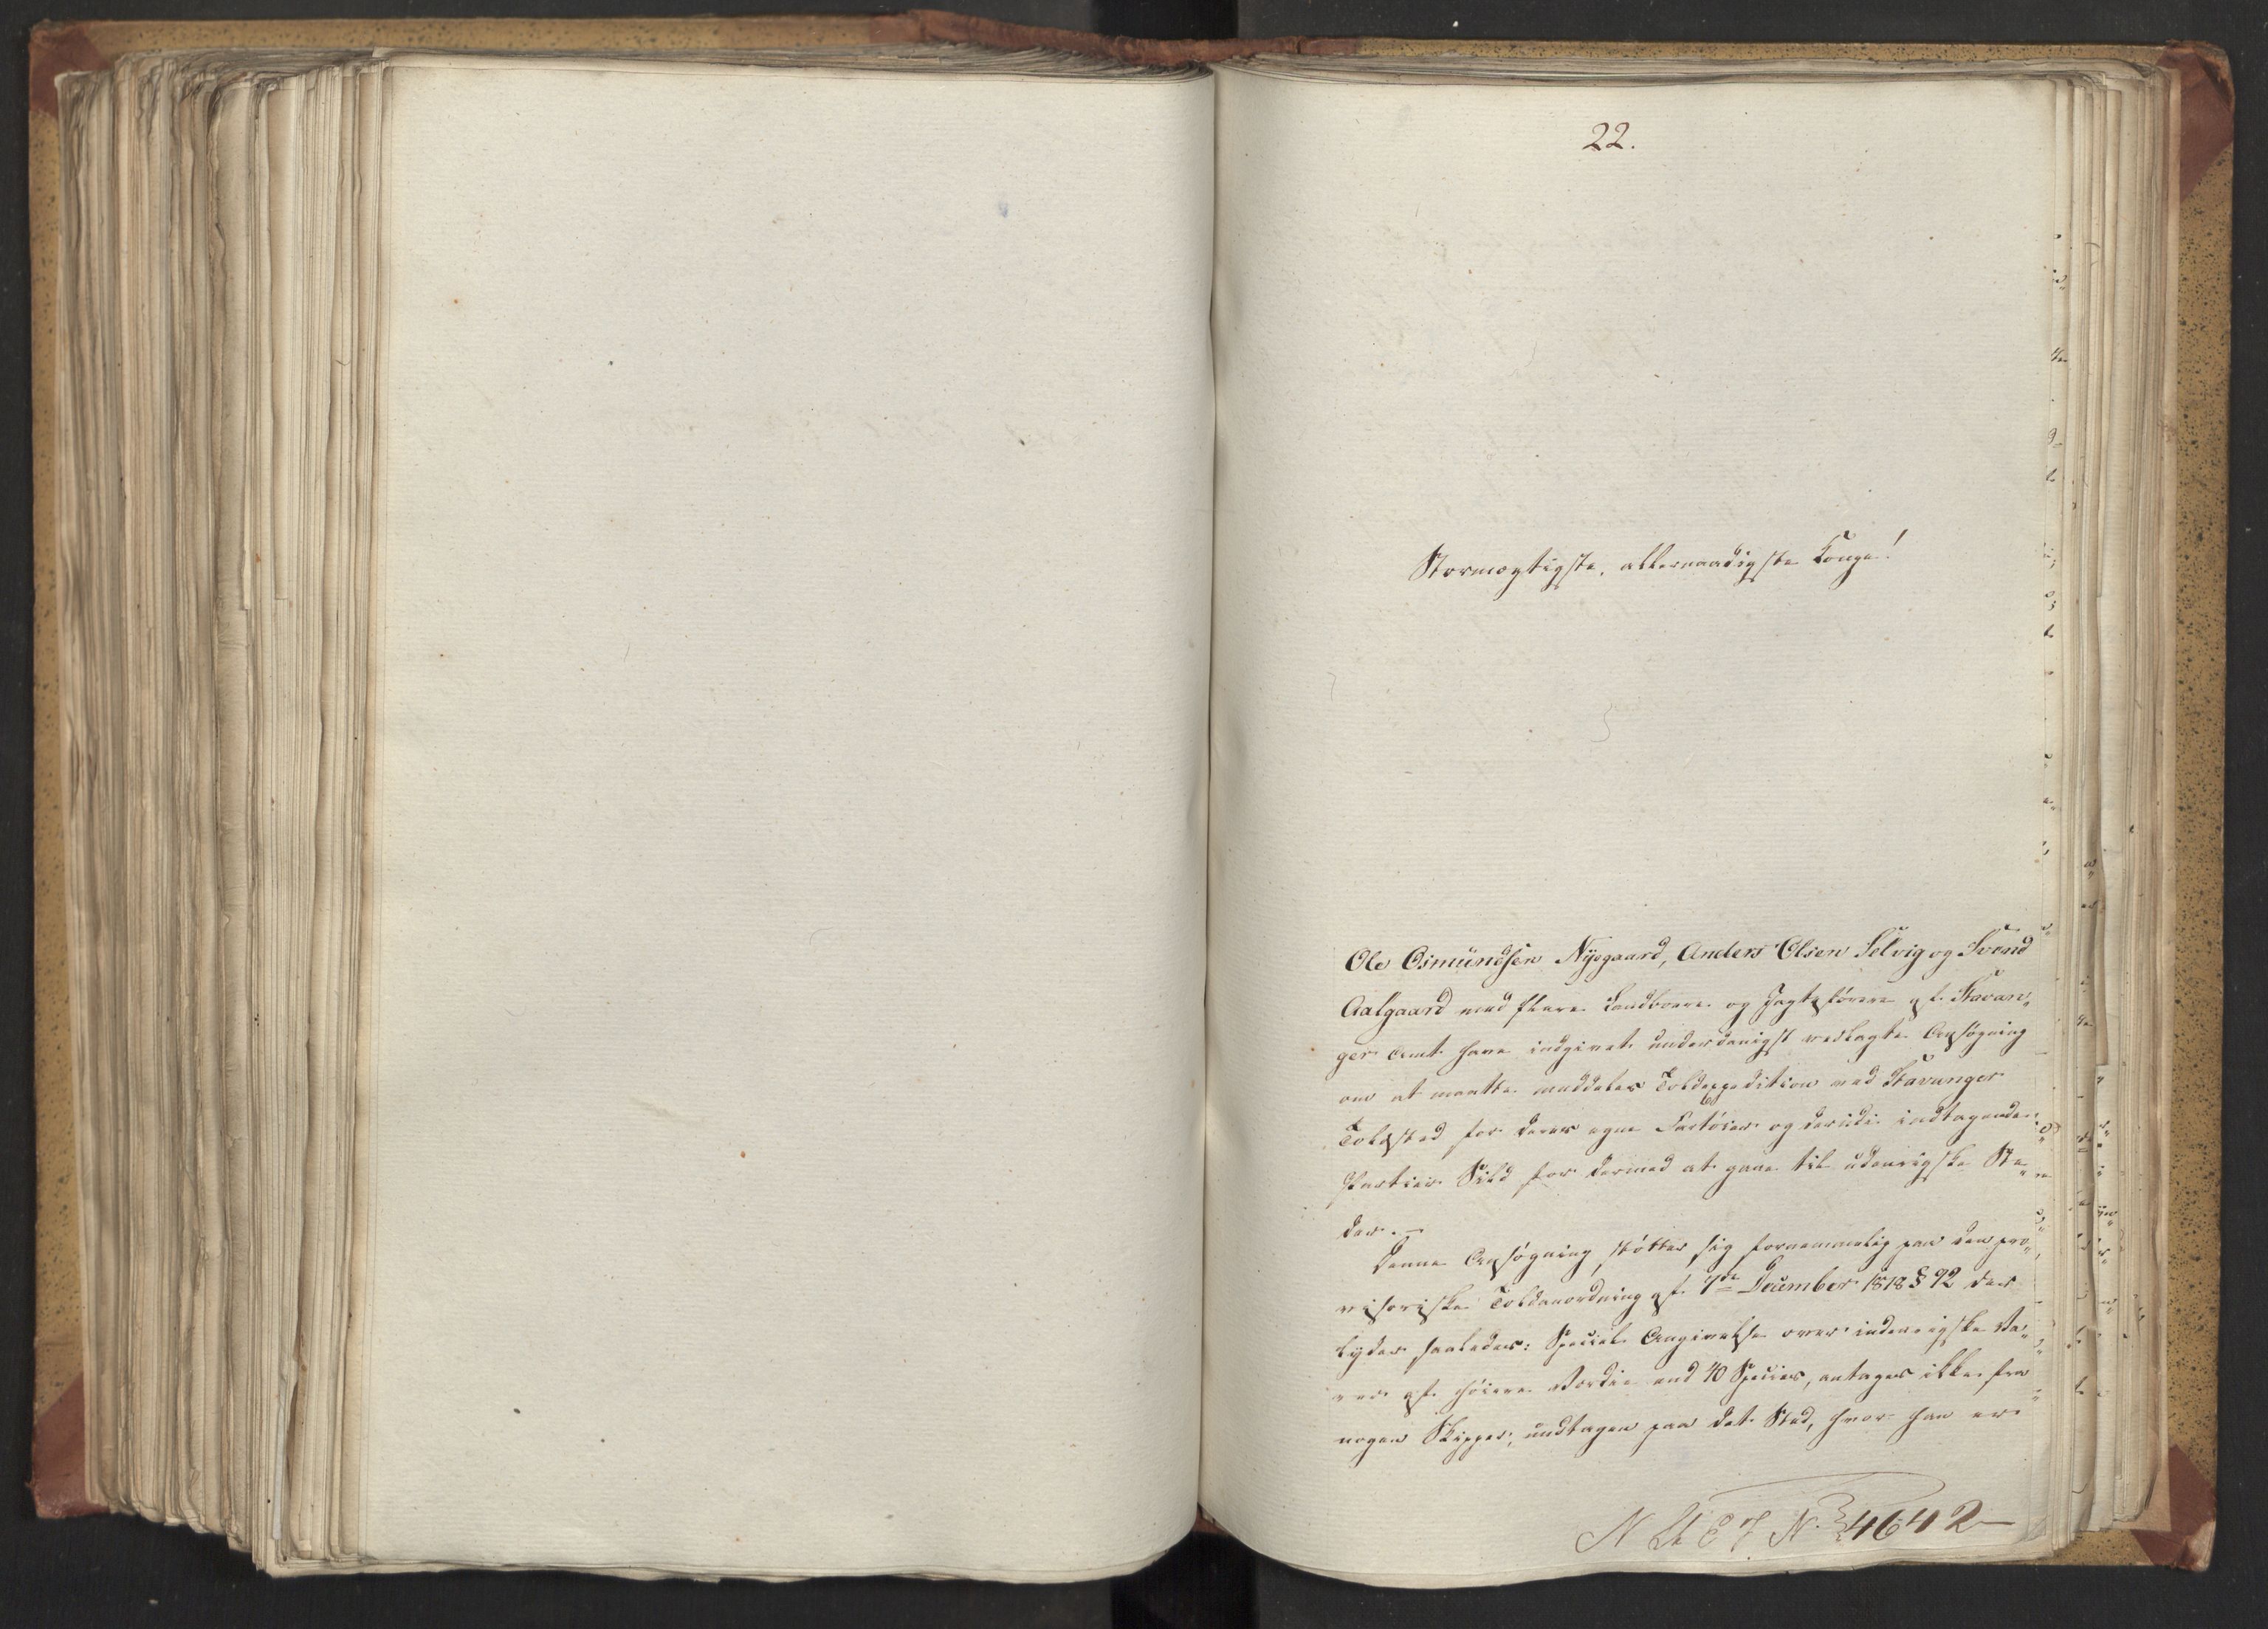 22.
Stormægtigste, allernaadigste Konge!
Ole Osmundsen Nygaard, Anders Olsen Selvig og Svend
Aalgaard med flere Landboere og Jagteførere af Stavan„
ger Amt have indgivet underdanigst vedlagte Ansøgning
om at maatte meddeles Toldexpedition ved Stavanger
Toldsted for deres egne Fartøier og derudi indtagende
Partier Sild for dermed at gaae til udenrigske Ste„
der. —
Denne Ansøgning støtter sig fornemmelig paa den pro„
visoriske Toldanordning af 7de December 1818 § 92 der
lyder saaledes: Special Angivelse over indenrigske Va„
rer af høiere Værdie end 40 Species, antages ikke fra
nogen Skipper, undtagen paa det Sted, hvor han er
4642